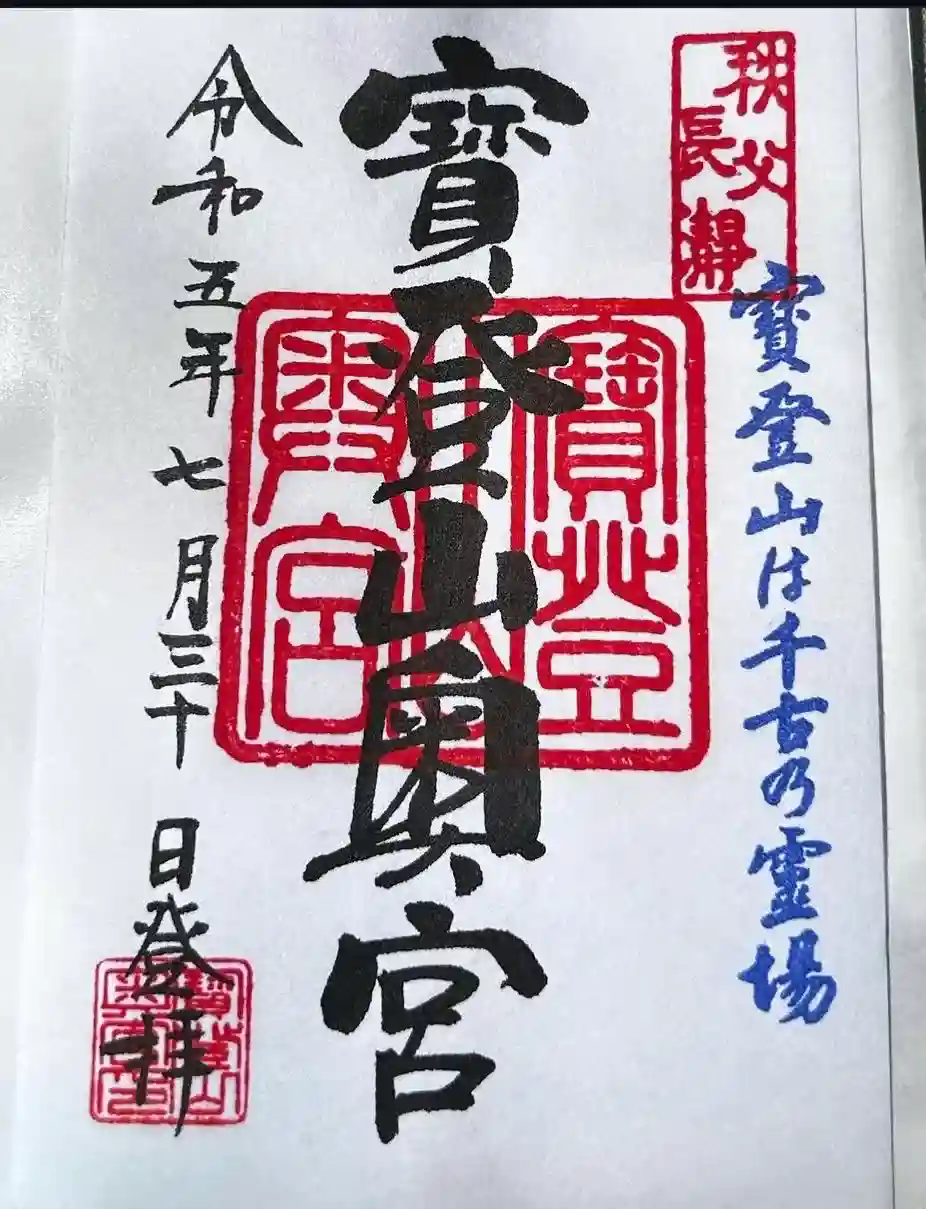 秩父
長瀞
寶登山は千古乃霊場
寶登山奥宮
寶登
山
奥宮
令和五年七月三十日登拝